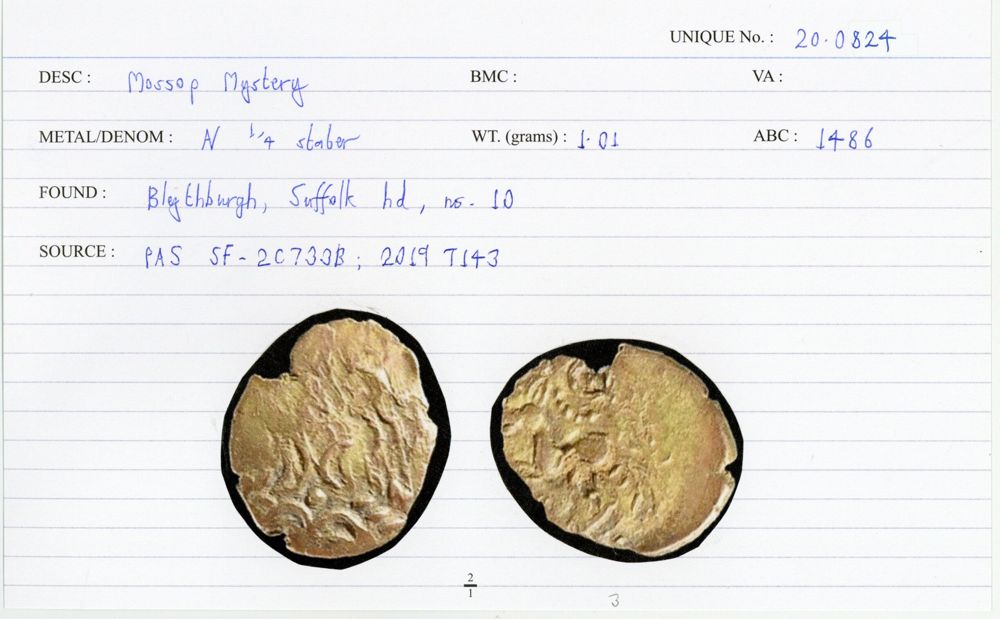 UNIQUE No. : 20.0824
DESC : Mossop Mystery BMC : VA :
METAL/DENOM : N 1/4 stater WT. (grams) : 1.01 ABC : 1486
FOUND : Blythburgh, Suffolk hd, no. 10
SOURCE : PAS SF-2C733B ; 2019 T143
2/1
3